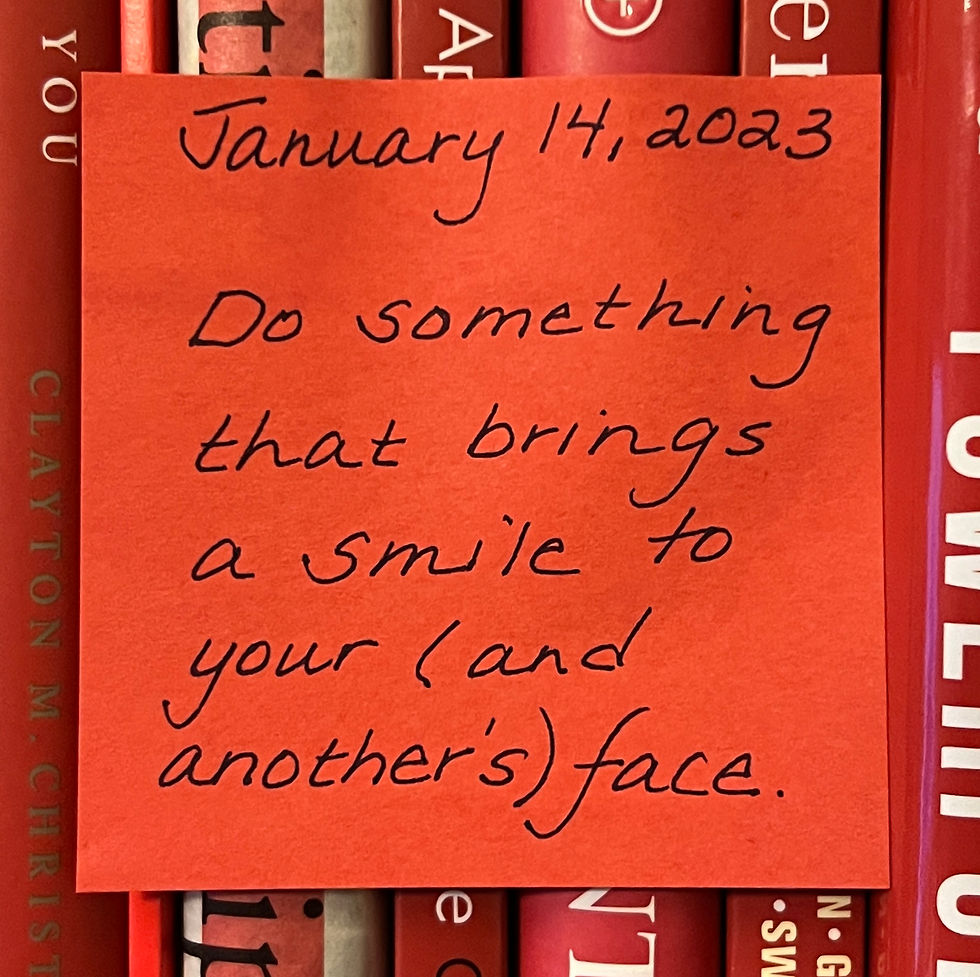 January 14, 2023
Do something
that brings
a smile to
your (and
another's) face.
YOU
CLAYTON M. CHRIST